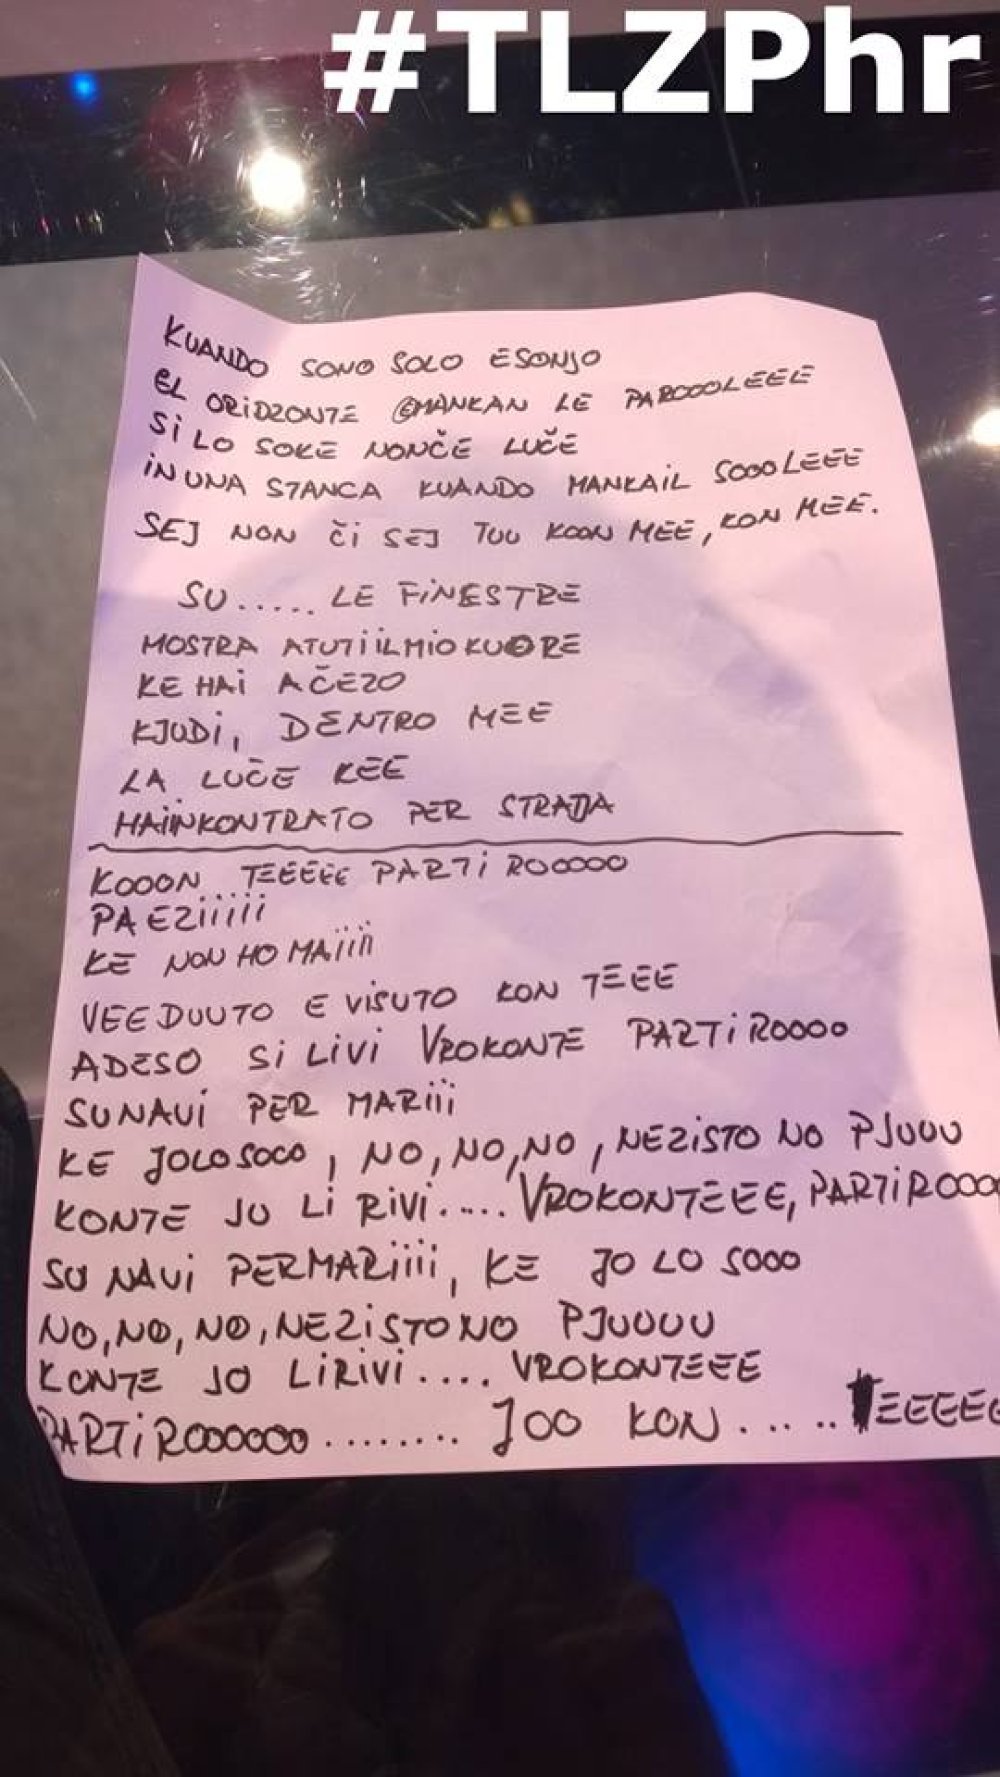 #TLZPhr
KUANDO SONO SOLO ESONJO
EL ORIDZONTE EMANKAN LE PAROOOLEEE
Si LO SOKE NONČE LUČE
iN UNA STANCA KUANDO MANKAIL SOOOLEEE
SEJ NON Či SEJ TUU KOON MEE, KON MEE.
SU..... LE FiNESTRE
MOSTRA ATUTi iL MIO KUORE
KE HAi AČEZO
KJUDi, DENTRO MEE
LA LUČE KEE
HAiINKONTRATO PER STRADA
KOOON TEEEEE PARTi ROOOOO
PAEZiiiii
KE NON HO MAiiii
VEEDUUTO E ViSUTO KON TEEE
ADESO Si LiVi VROKONTE PARTiROOOO
SUNAVi PER MARiii
KE JOLOSOOO, NO, NO, NO, NEZiSTO NO PJUUU
KONTE JO Li RiVi..... VROKONTEEE, PARTiROOOO
SU NAVi PERMARiiii, KE JO LO SOOO
NO, NO, NO, NEZiSTONO PJUUUU
KONTE JO LiRiVi.... VROKONTEEE
PARTiROOOOOO........ JOO KON.....TEEEEE